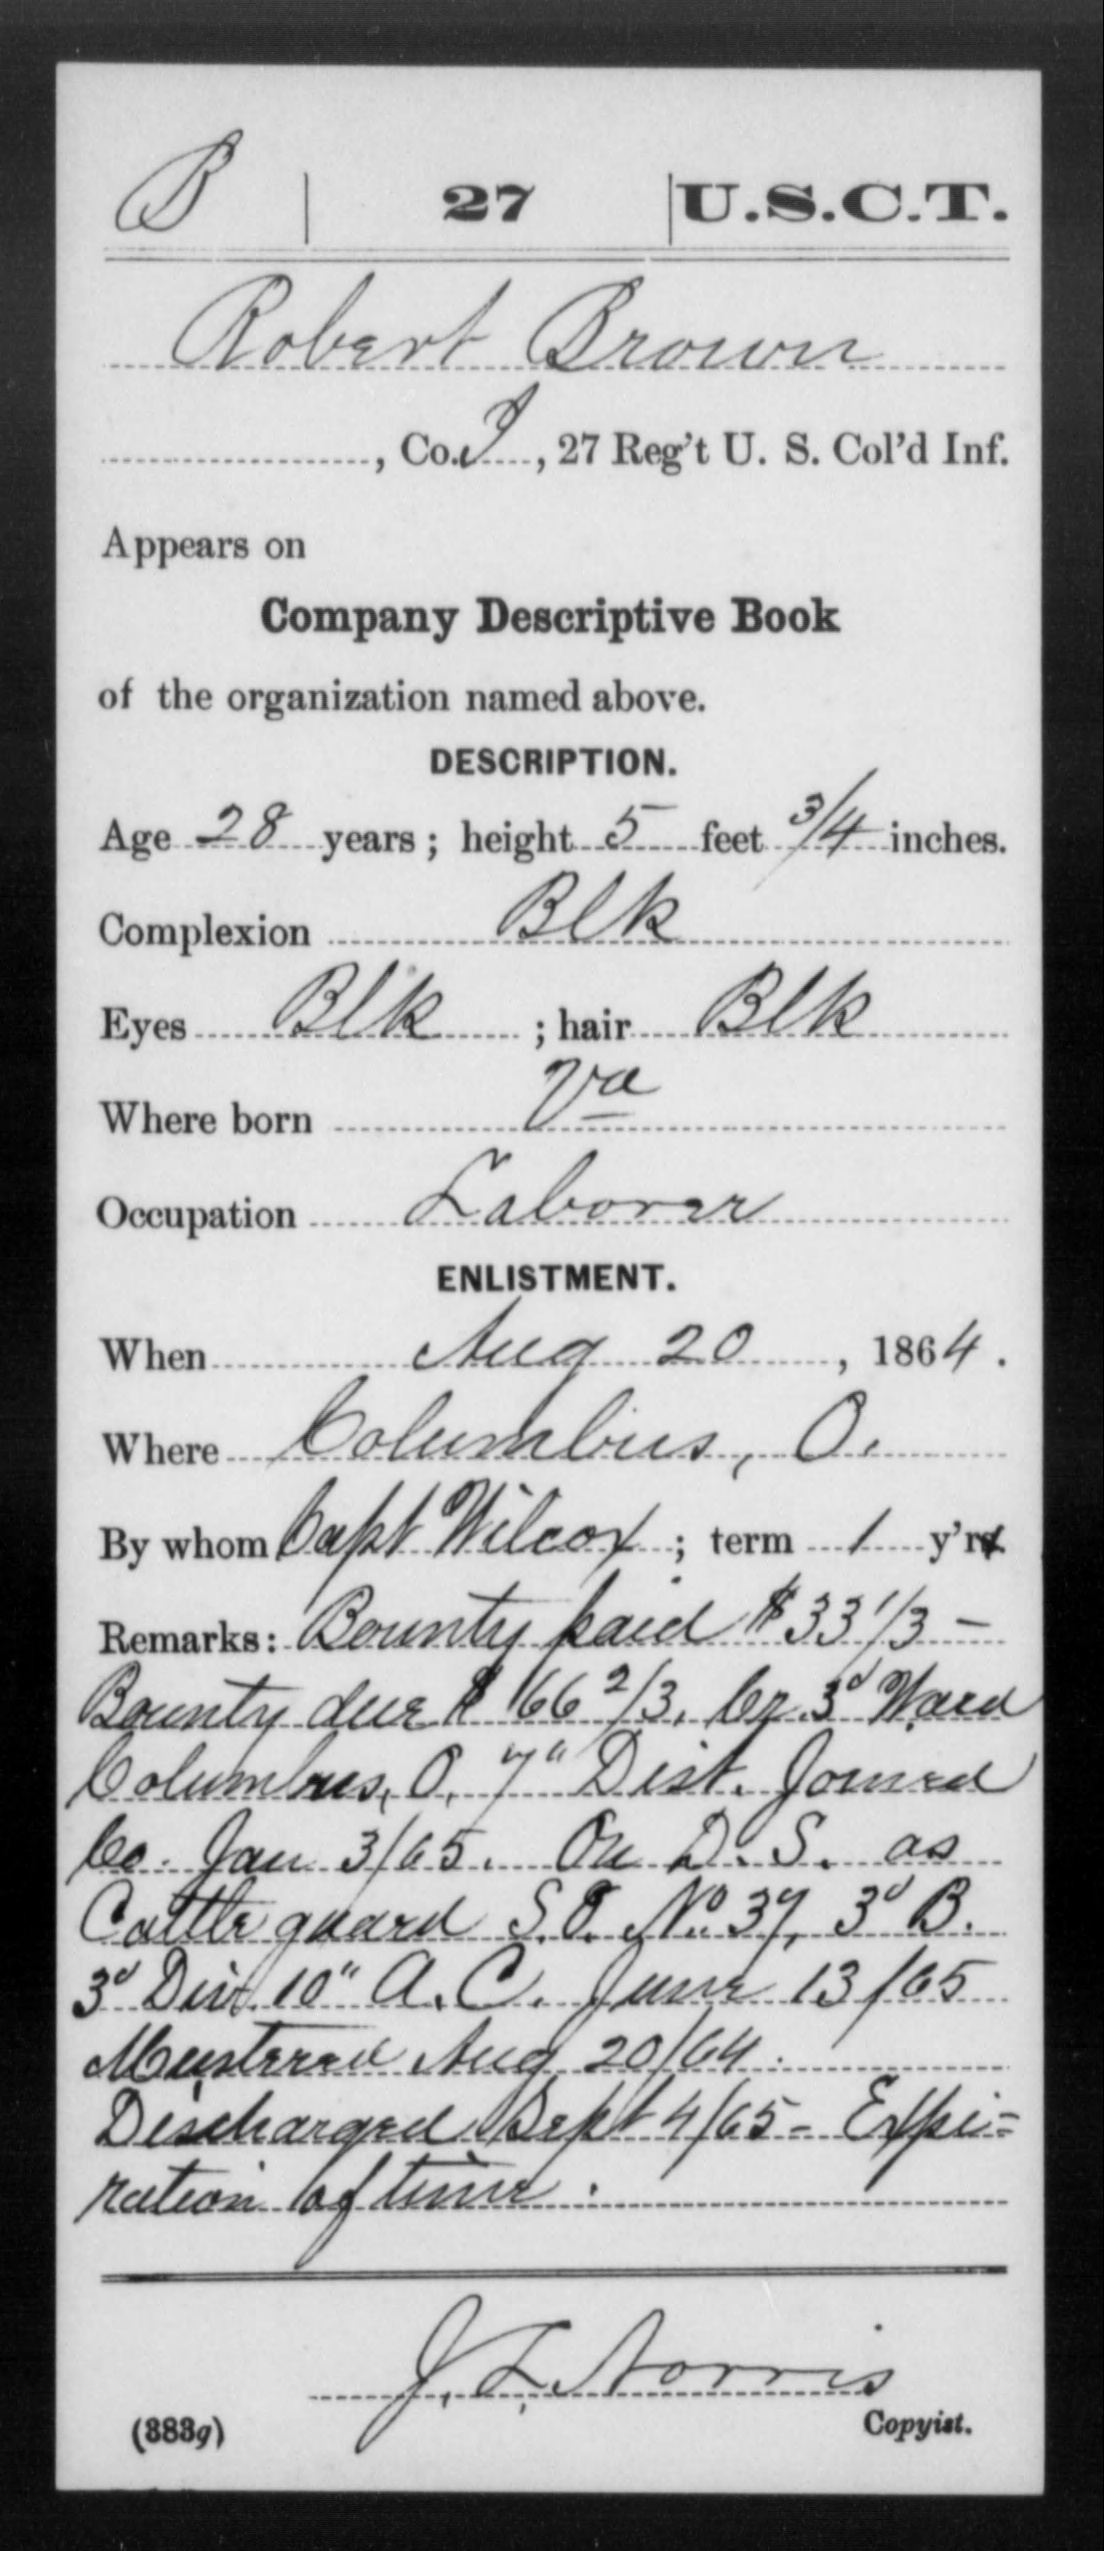 B | 27 | U.S.C.T.
Robert Brown
, Co. I, 27 Reg't U. S. Col'd Inf.
Appears on
Company Descriptive Book
of the organization named above.
DESCRIPTION.
Age 28 years; height 5 feet 3/4 inches.
Complexion Blk
Eyes Blk ; hair Blk
Where born Va
Occupation Laborer
ENLISTMENT.
When Aug 20, 1864.
Where Columbus, O.
By whom Capt Wilcox; term 1 y'rs
Remarks: Bounty paid $33 1/3 —
Bounty due $ 66 2/3. Cr. 3d Ward
Columbus, O. 7" Dist. Joined
Co. Jan 3/65. On D. S. as
Cattle guard S.O. No. 37, 3d B.
3d Div. 10" A. C. June 13/65
Mustered Aug 20/64.
Discharged Sept 4/65 - Expi=
ration of time.
J. L. Norris
(383g) Copyist.